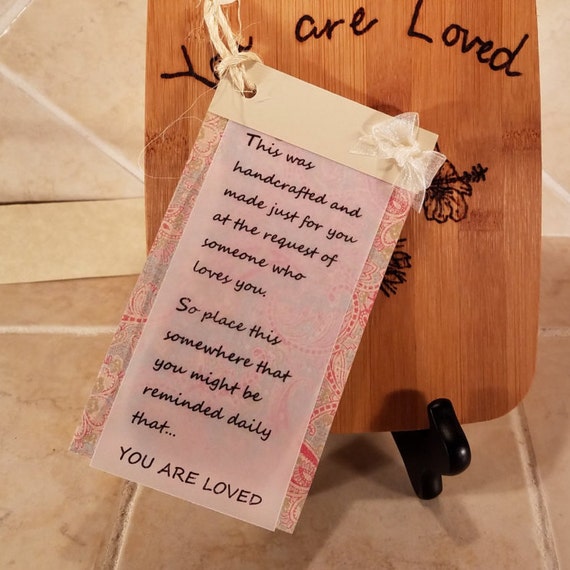 You are Loved
This was
handcrafted and
made just for you
at the request of
someone who
loves you.
So place this
somewhere that
you might be
reminded daily
that...
YOU ARE LOVED